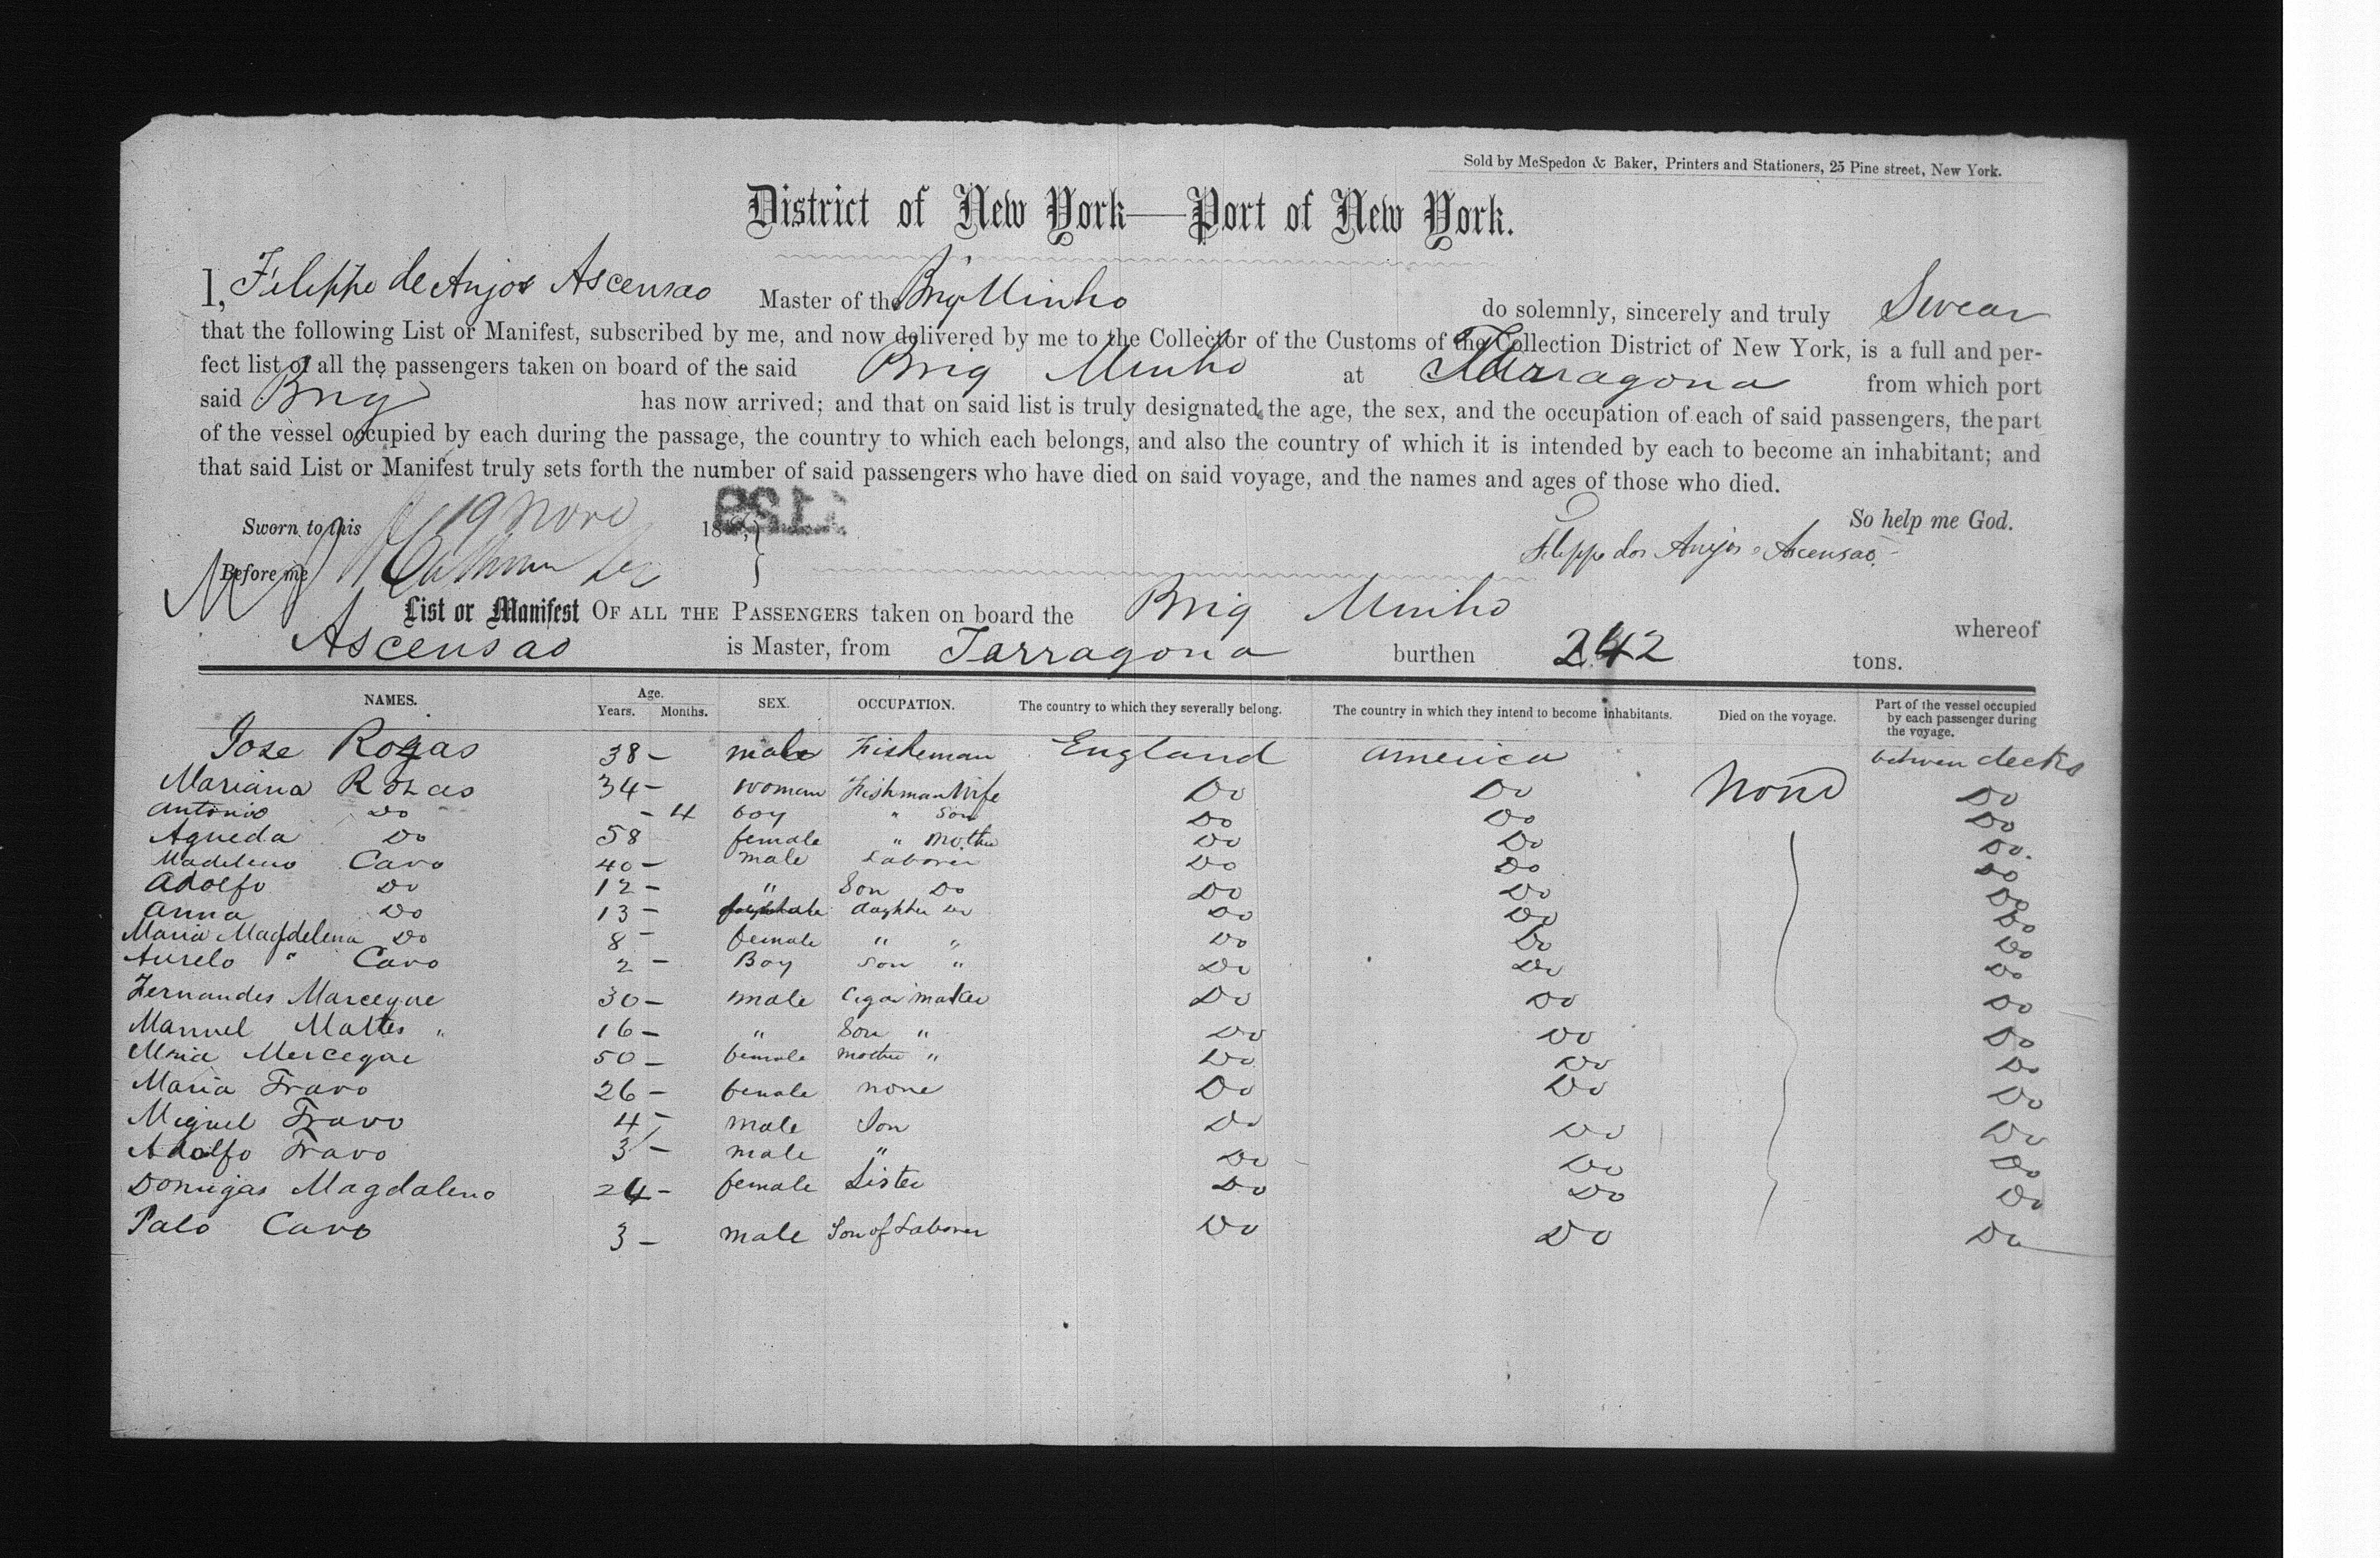 Sold by McSpedon & Baker, Printers and Stationers, 25 Pine street, New York.
District of New York—Port of New York.
I, Filippe de Anjos Ascensao Master of the Brig Minho do solemnly, sincerely and truly Swear
that the following List or Manifest, subscribed by me, and now delivered by me to the Collector of the Customs of the Collection District of New York, is a full and per-
fect list of all the passengers taken on board of the said Brig Minho at Tarragona from which port
said Brig has now arrived; and that on said list is truly designated the age, the sex, and the occupation of each of said passengers, the part
of the vessel occupied by each during the passage, the country to which each belongs, and also the country of which it is intended by each to become an inhabitant; and
that said List or Manifest truly sets forth the number of said passengers who have died on said voyage, and the names and ages of those who died.
Sworn to this 19 Nov 18 So help me God.
Filippe dos Anjos Ascensao
Before me
List or Manifest OF ALL THE PASSENGERS taken on board the Brig Minho whereof
Ascensao is Master, from Tarragona burthen 242 tons.
NAMES. Age. Years. Months. SEX. OCCUPATION. The country to which they severally belong. The country in which they intend to become inhabitants. Died on the voyage. Part of the vessel occupied by each passenger during the voyage.
Jose Rogas 38 – male Fisheman England america between decks
Mariana Rozas 34 – woman Fishman Wife Do Do None Do
Antonio Do – 4 boy " Son Do Do Do
Agueda Do 58 female " Mother Do Do Do.
Madeleno Cavo 40 – male Laborer Do Do Do
Adolfo Do 12 – " Son Do Do Do Do
Anna Do 13 – daughter Do Do Do Do
Maria Magdelena Do 8 – female " " Do Do Do
Aurelo " Cavo 2 – Boy Son " Do Do Do
Fernandes Marcegue 30 – male Cigar maker Do Do Do
Manuel Maltes " 16 – " Son " Do Do Do
Maria Mercegue 50 – female mother " Do Do Do
Maria Fravo 26 – female none Do Do Do
Miguel Fravo 4 – male Son Do Do Do
Adolfo Fravo 3 – male " Do Do Do
Domigas Magdaleno 24 – female Sister Do Do Do
Palo Cavo 3 – male Son of Laborer Do Do Do